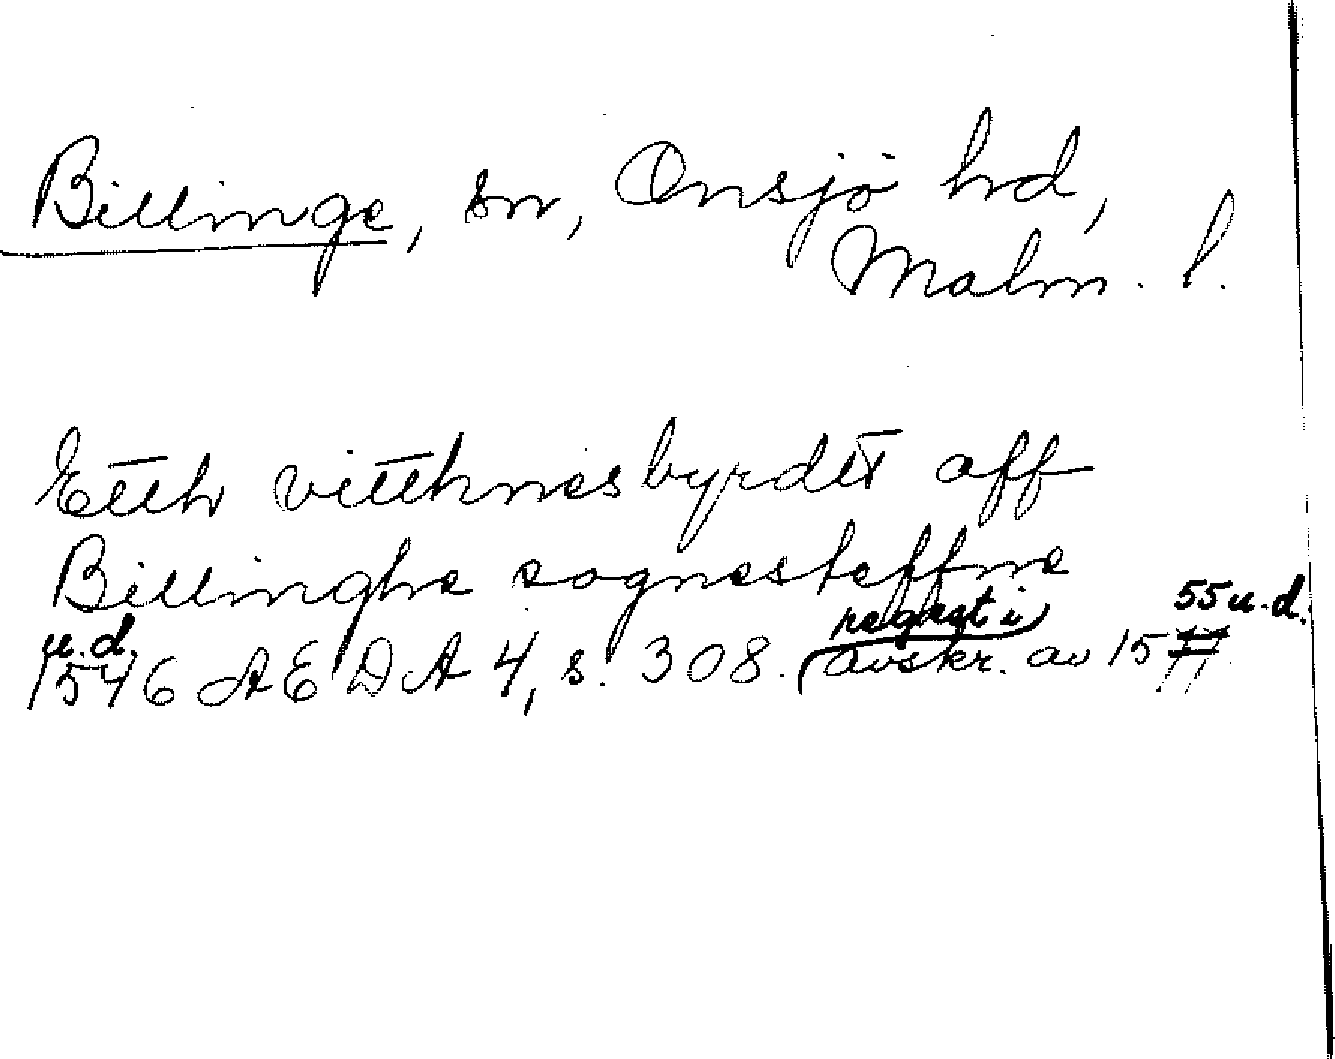 Billinge, sn, Onsjö hd,
Malm. l.
Etth vitthnesbyrdtt aff
Billinghe sognesteffne
u.d. regest i 55 u.d.
1546 AEDA 4, s. 308. (avskr. av 1577